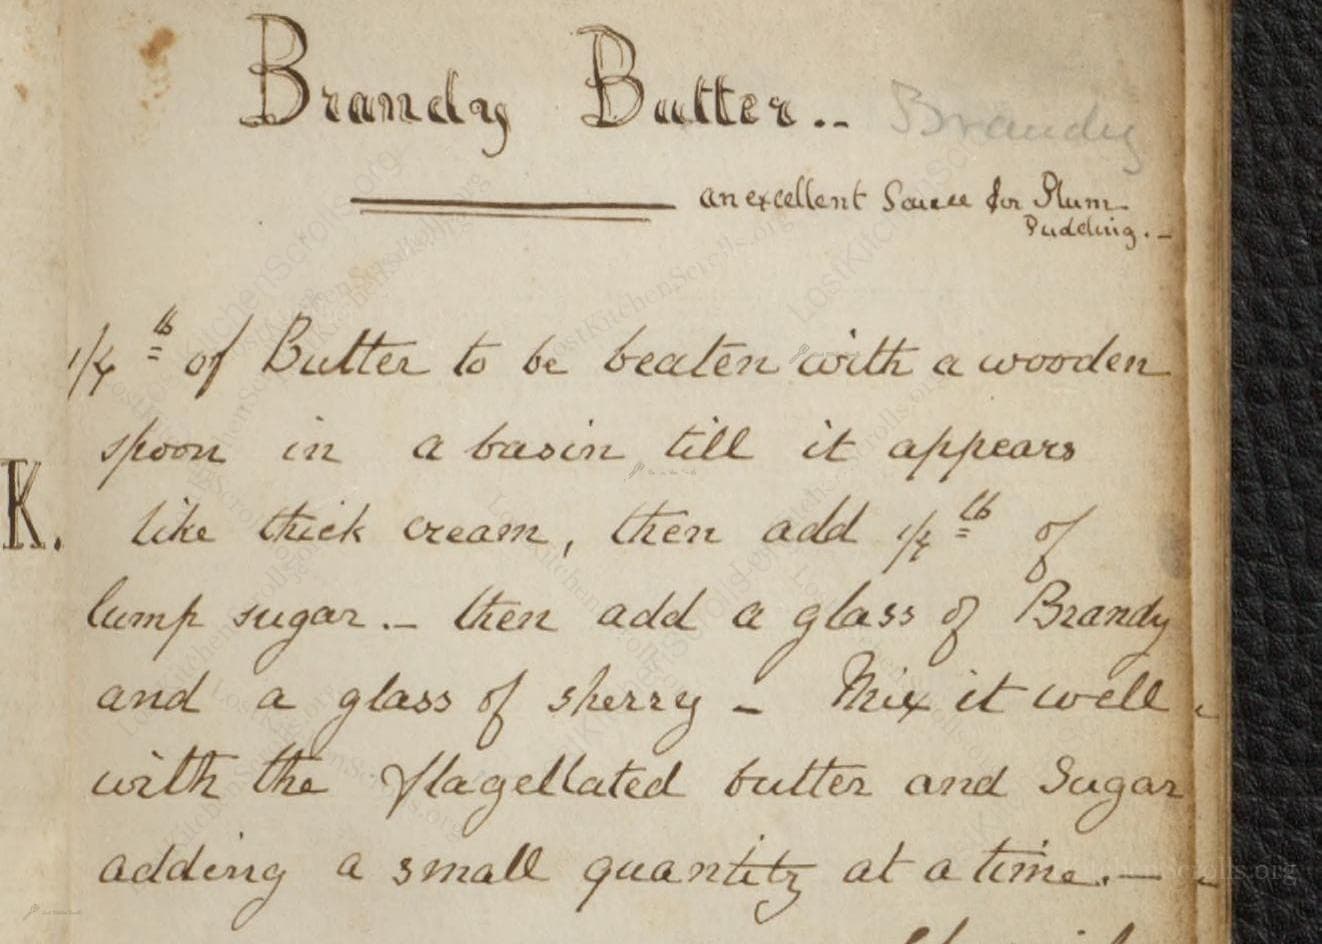 Brandy Butter..
Brandy
an excellent Sauce for Plum
Pudding.-
1/4 lb of Butter to be beaten with a wooden
spoon in a basin till it appears
K.
like thick cream, then add 1/4 lb of
lump sugar.- then add a glass of Brandy
and a glass of sherry - Mix it well
with the flagellated butter and Sugar
adding a small quantity at a time.-